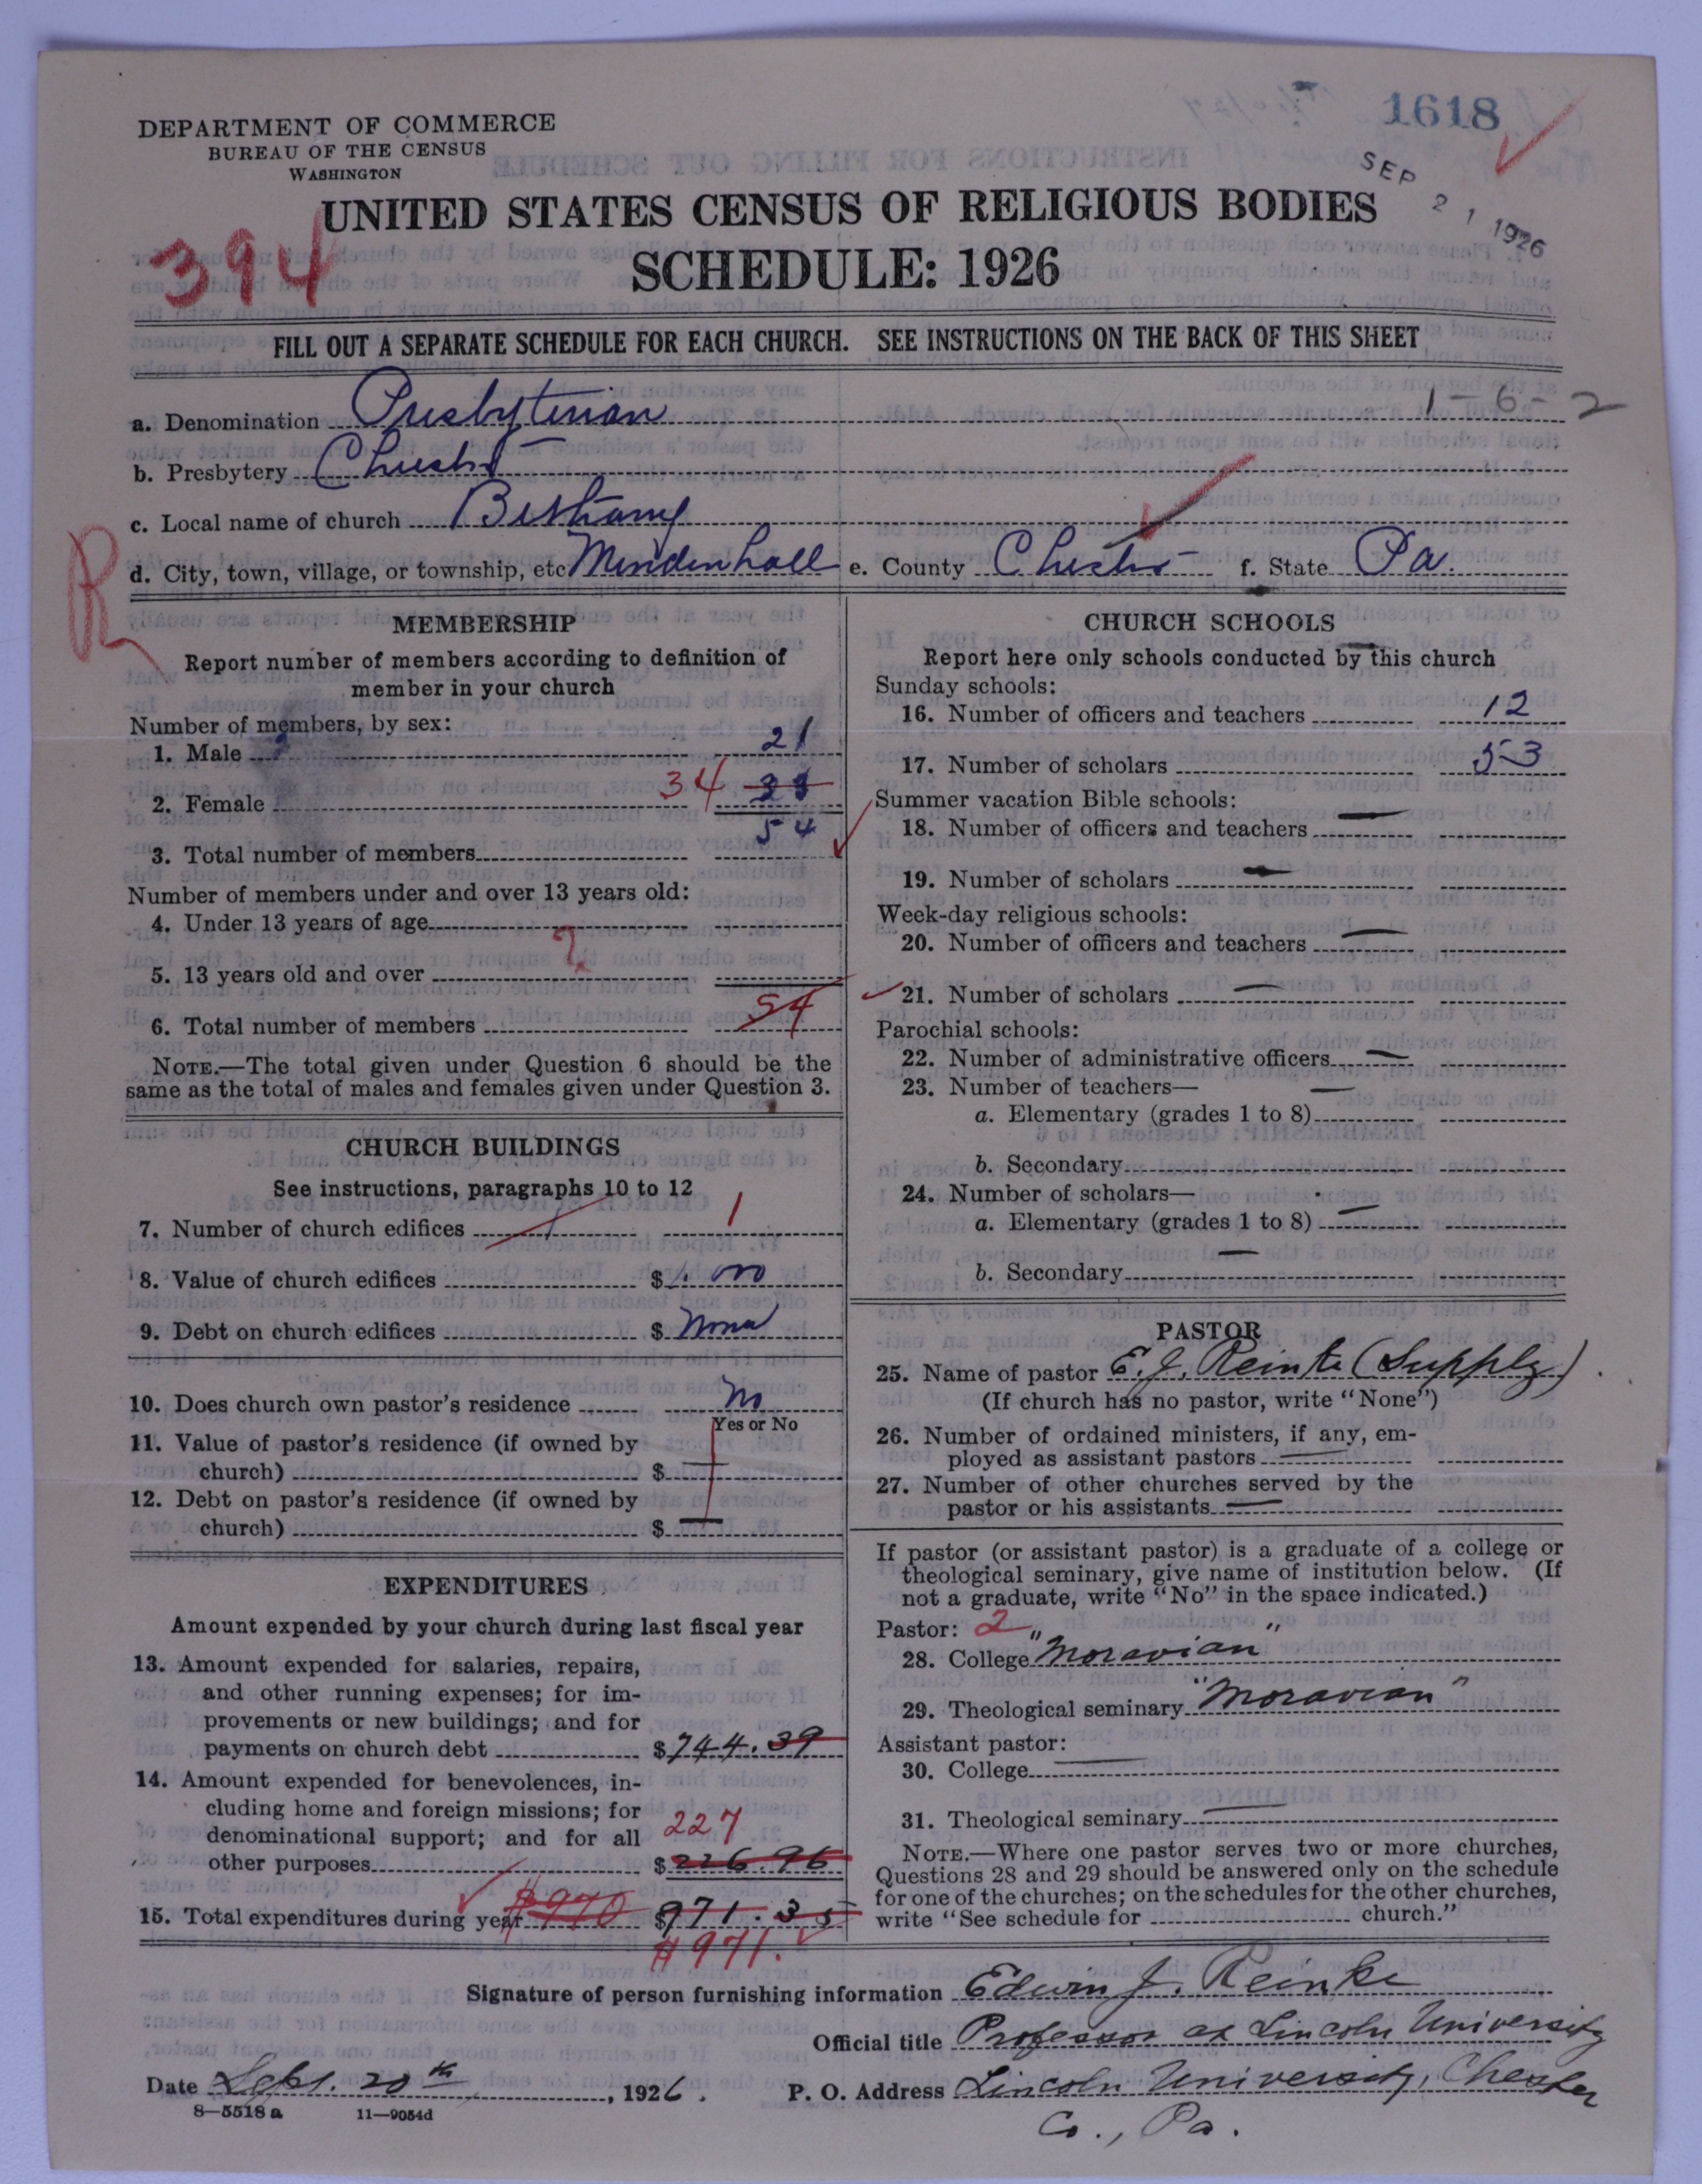 1618
DEPARTMENT OF COMMERCE
BUREAU OF THE CENSUS
WASHINGTON
SEP 21 1926
UNITED STATES CENSUS OF RELIGIOUS BODIES
394
SCHEDULE: 1926
FILL OUT A SEPARATE SCHEDULE FOR EACH CHURCH. SEE INSTRUCTIONS ON THE BACK OF THIS SHEET
a. Denomination Presbyterian 1-6-2
b. Presbytery Chester
c. Local name of church Bethany
R
d. City, town, village, or township, etc Mendenhall e. County Chester f. State Pa.
MEMBERSHIP
Report number of members according to definition of
member in your church
Number of members, by sex:
1. Male 21
2. Female 34 33
3. Total number of members 54
Number of members under and over 13 years old:
4. Under 13 years of age
?
5. 13 years old and over
6. Total number of members 54
NOTE.—The total given under Question 6 should be the
same as the total of males and females given under Question 3.
CHURCH BUILDINGS
See instructions, paragraphs 10 to 12
7. Number of church edifices 1 1
8. Value of church edifices $
9. Debt on church edifices $ None
10. Does church own pastor's residence No
Yes or No
11. Value of pastor's residence (if owned by
church) $ —
12. Debt on pastor's residence (if owned by
church) $ —
EXPENDITURES
Amount expended by your church during last fiscal year
13. Amount expended for salaries, repairs,
and other running expenses; for im-
provements or new buildings; and for
payments on church debt $744.39
14. Amount expended for benevolences, in-
cluding home and foreign missions; for
denominational support; and for all 227
other purposes $226.96
15. Total expenditures during year $970 $971.35
$971.
CHURCH SCHOOLS
Report here only schools conducted by this church
Sunday schools:
16. Number of officers and teachers 12
17. Number of scholars 53
Summer vacation Bible schools:
18. Number of officers and teachers —
19. Number of scholars —
Week-day religious schools:
20. Number of officers and teachers —
21. Number of scholars —
Parochial schools:
22. Number of administrative officers —
23. Number of teachers—
a. Elementary (grades 1 to 8) —
b. Secondary
24. Number of scholars—
a. Elementary (grades 1 to 8) —
b. Secondary —
PASTOR
25. Name of pastor E. J. Reinke (Supply)
(If church has no pastor, write "None")
26. Number of ordained ministers, if any, em-
ployed as assistant pastors —
27. Number of other churches served by the
pastor or his assistants —
If pastor (or assistant pastor) is a graduate of a college or
theological seminary, give name of institution below. (If
not a graduate, write "No" in the space indicated.)
Pastor: 2
28. College "Moravian"
29. Theological seminary "Moravian"
Assistant pastor:
30. College —
31. Theological seminary —
NOTE.—Where one pastor serves two or more churches,
Questions 28 and 29 should be answered only on the schedule
for one of the churches; on the schedules for the other churches,
write "See schedule for church."
Signature of person furnishing information Edwin J. Reinke
Official title Professor at Lincoln University
Date Sept. 20th, 1926. P. O. Address Lincoln University, Chester
Co., Pa.
8—5518 a 11—9054d